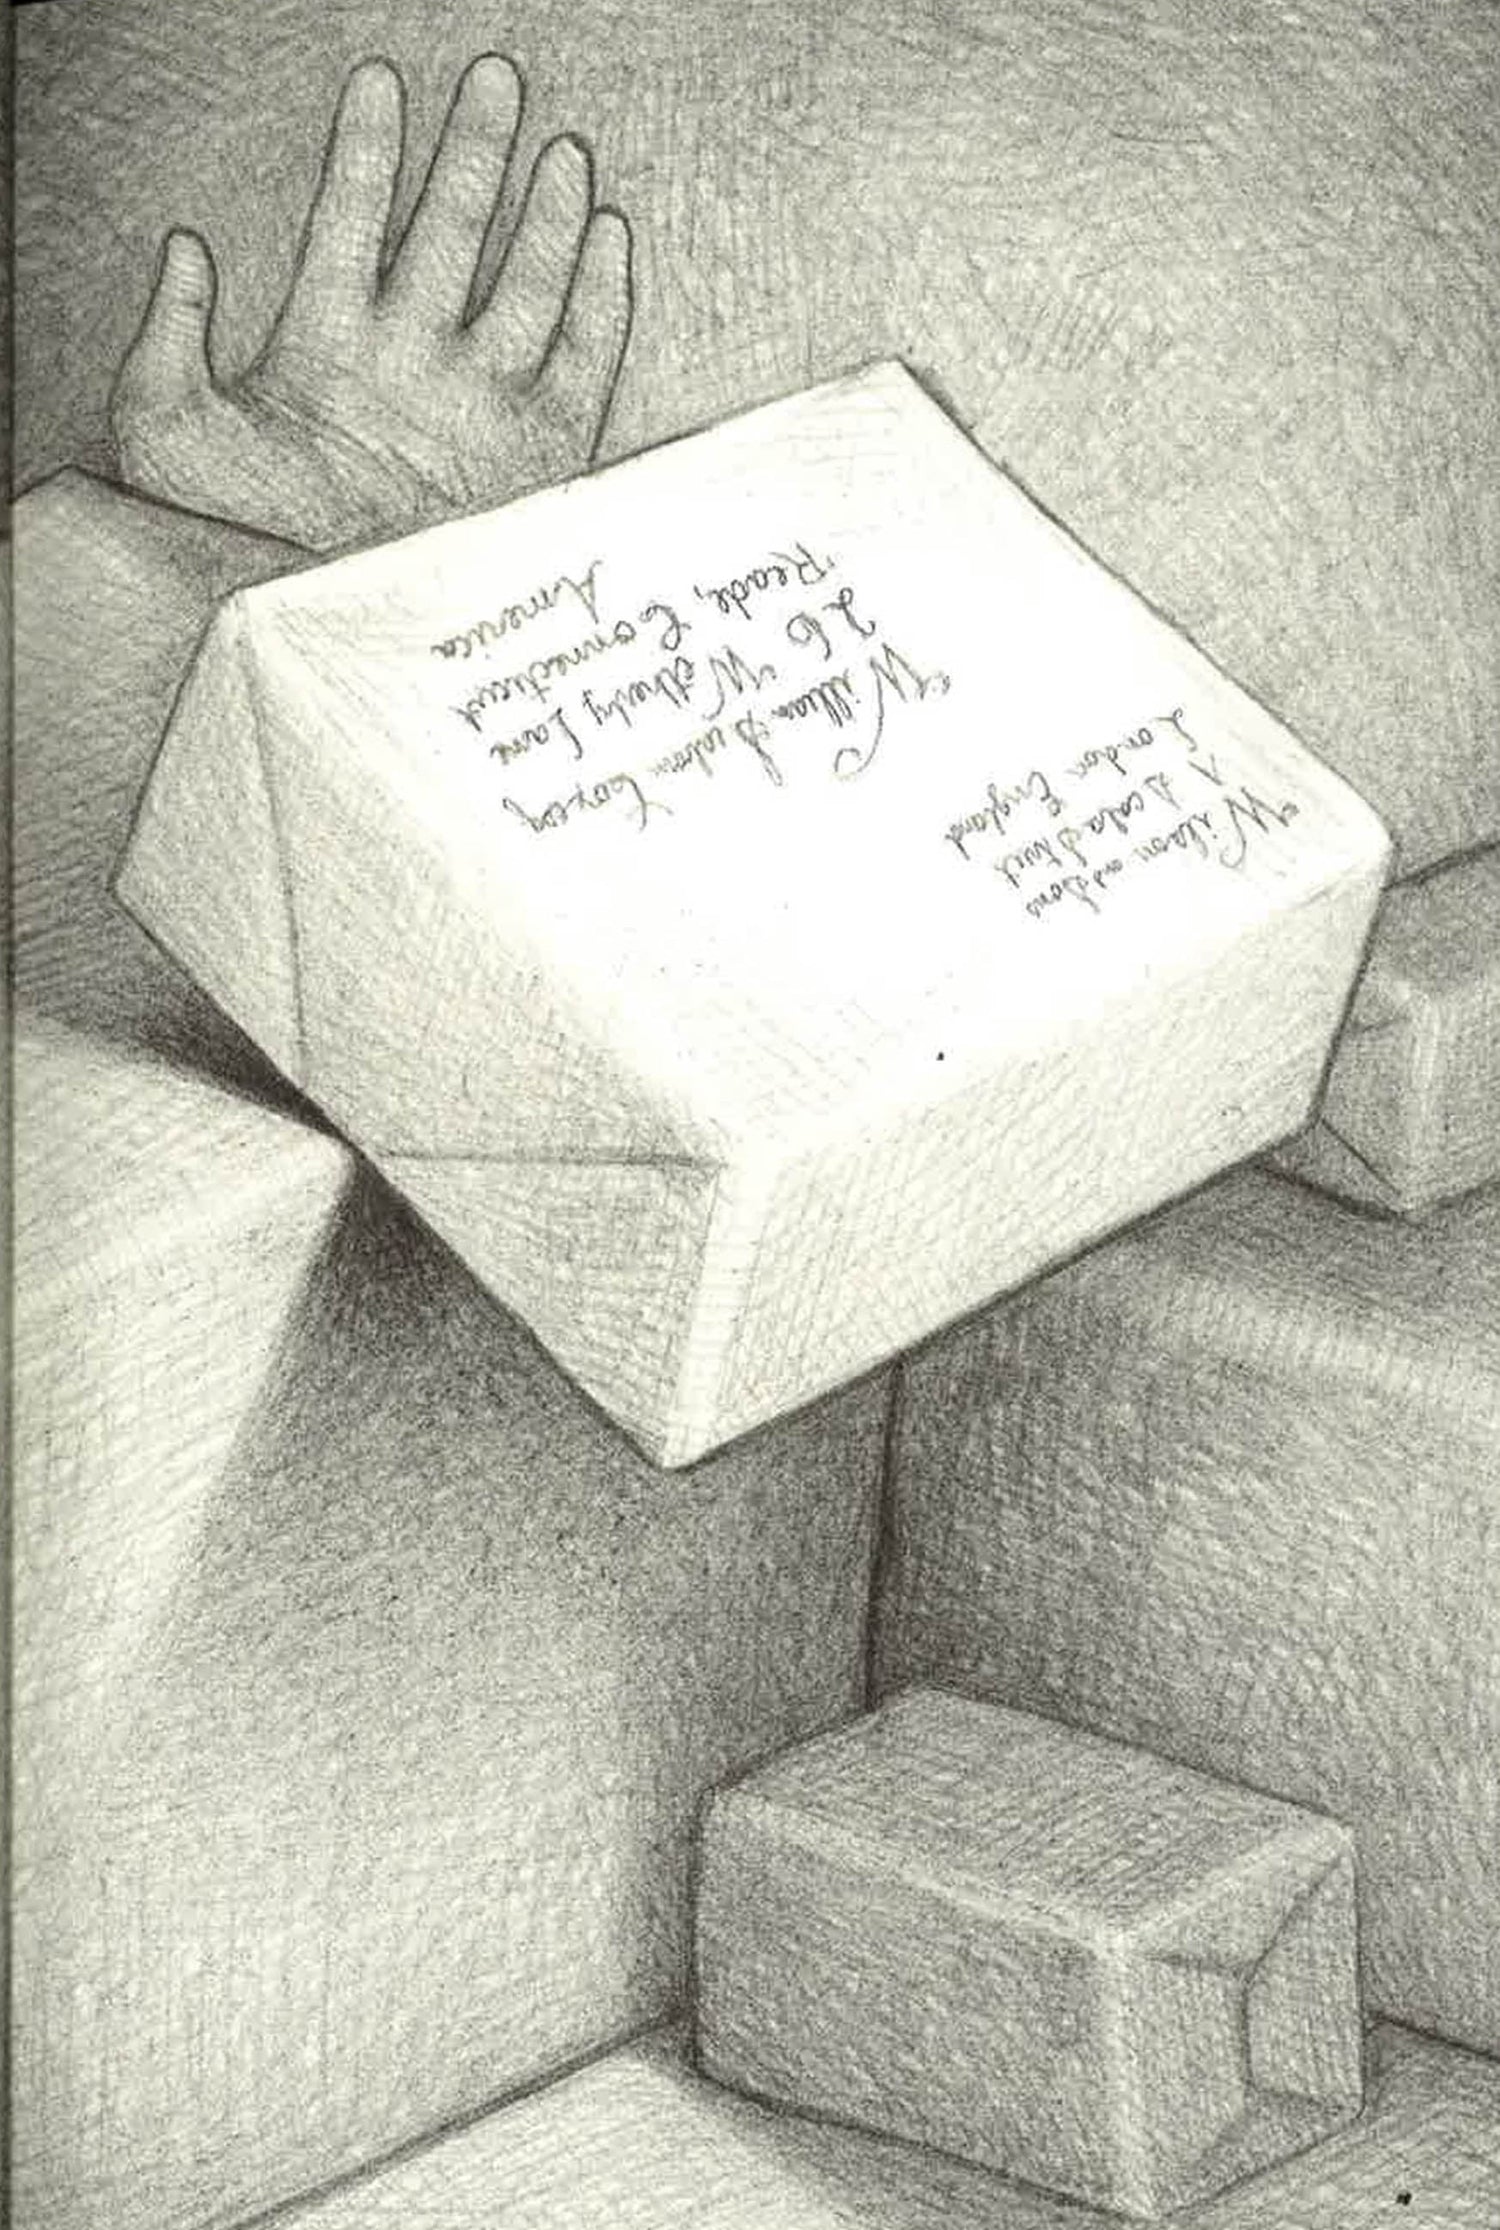 Wilson and Sons
1 Scala Street
London England
William Dutton Coxey
26 Wetherby Lane
Reade, Connecticut
America